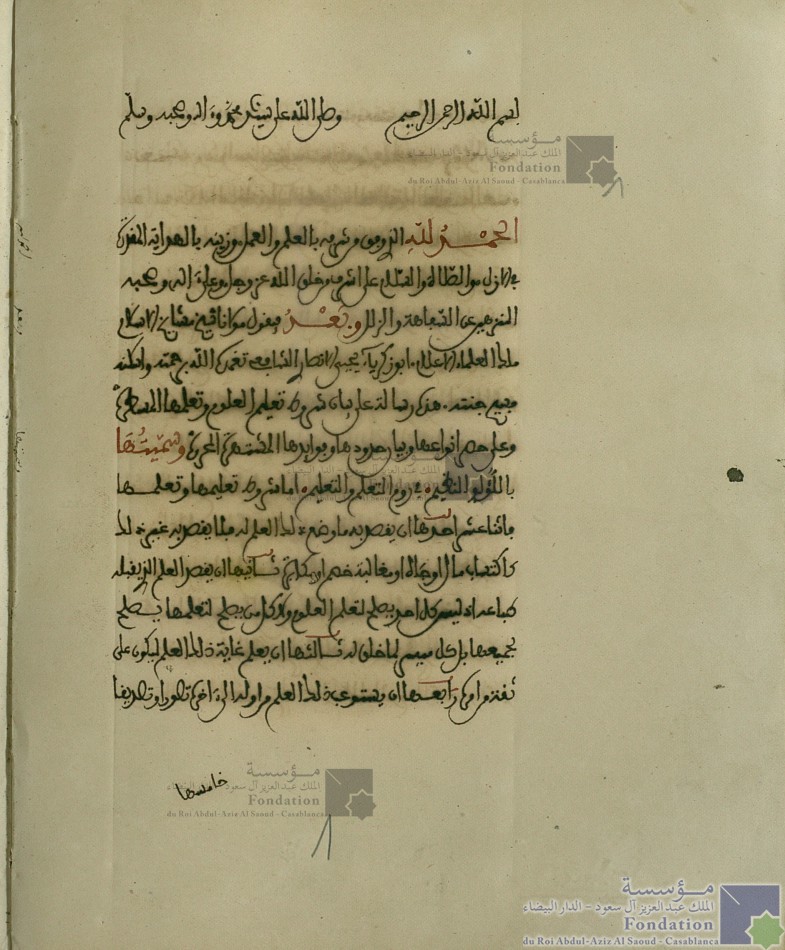 بسم الله الرحمن الرحيم وصلى الله على سيدنا محمد وءاله وصحبه وسلم
مؤسسة
الملك عبد العزيز آل سعود - الدار البيضاء
Fondation
du Roi Abdul-Aziz Al Saoud - Casablanca
الحمد لله الذي من شرفه بالعلم والعمل وزينه بالهداية المقدرة
في الازل والصلاة والسلام على اشرف خلق الله عز وجل وعلى ءاله وصحبه
المنزهين عن السفاهة والزلل وبعد فيقول مولانا شيخ مشايخ الاسلام
ملك العلماء الاعلام ابو زكرياء يحيى الانصاري الشافعي تغمده الله برحمته واسكنه
فسيح جنته هذه رسالة على بيان شروط تعليم العلوم وتعلمها
وعلى حصر انواعها وبيان حدودها وفوايدها المحررة وسميتها
باللؤلؤ النظيم في روم التعلم والتعليم اما شروط تعليمها وتعلمها
فاثنا عشر احدها ان يقصد به ما وضع ذلك العلم له فلا يقصد به غير ذلك
كاكتساب مال او جاه او مغالبة خصم او مكابرة ثانيها ان يقصد العلم الذي يقبله
طباعه اذ ليس كل احد يصلح لتعلم العلوم ولا كل من يصلح لتعلمها يصلح
لجميعها بل كل ميسر لما خلق له ثالثها ان يعلم غاية ذلك العلم ليكون على
ثقة من امره رابعها ان يستوعب ذلك العلم من اوله الى ءاخره تصورا وتصديقا
خامسها
مؤسسة
الملك عبد العزيز آل سعود - الدار البيضاء
Fondation
du Roi Abdul-Aziz Al Saoud - Casablanca
مؤسسة
الملك عبد العزيز آل سعود - الدار البيضاء
Fondation
du Roi Abdul-Aziz Al Saoud - Casablanca